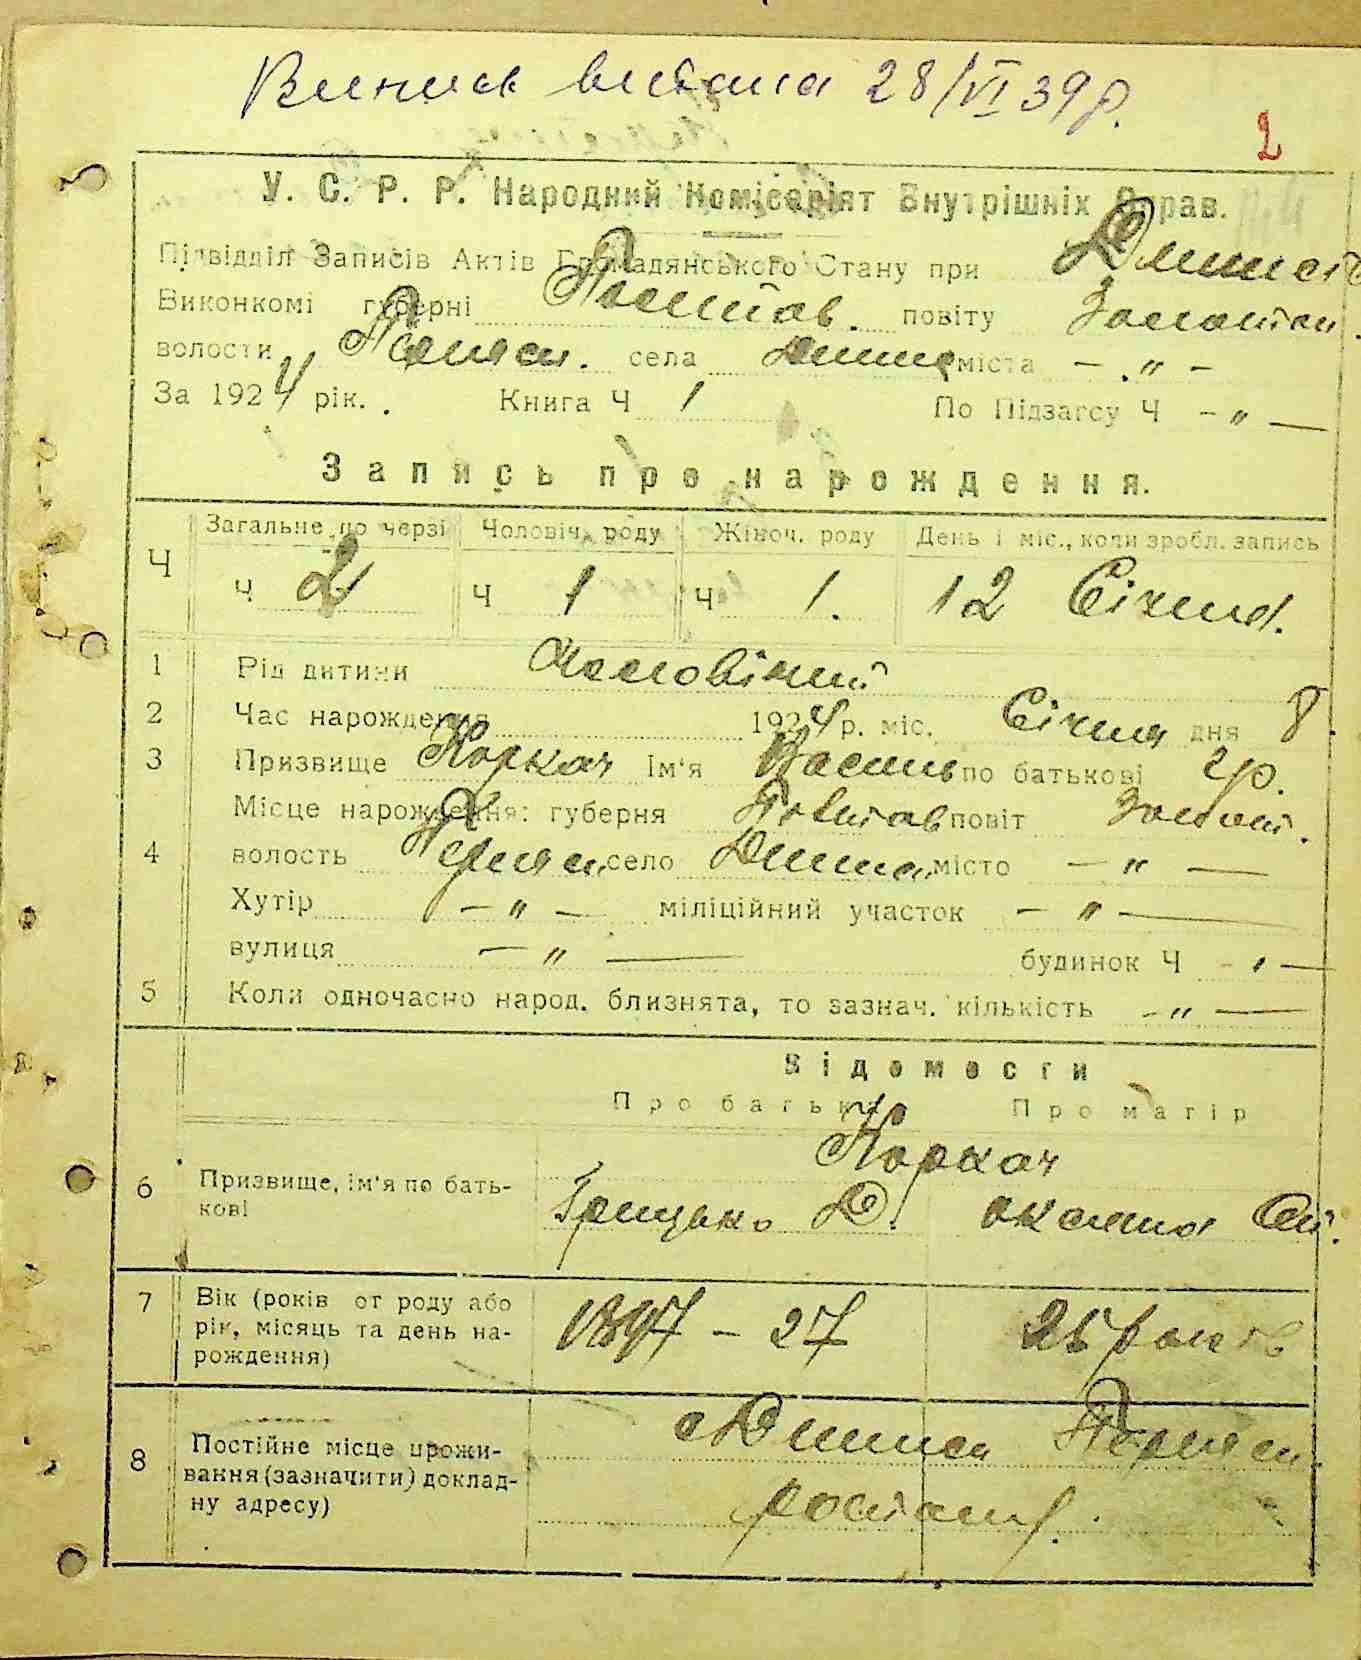 Випись видана 28/VI 39 р.
2
У. С. Р. Р. Народний Комісаріят Внутрішніх Справ.
Підвідділ Записів Актів Громадянського Стану при
Виконкомі губерні Полтав. повіту Золотон.
волости села міста — „ —
За 1924 рік. Книга Ч 1 По Підзагсу Ч — „ —
Запись про нарождення.
Загальне по черзі Чоловіч. роду Жіноч. роду День і міс., коли зробл. запись
Ч Ч 2 Ч 1 Ч 1. 12 Січня.
1 Рід дитини Чоловічий
2 Час нарождения 1924 р. міс. Січня дня 8.
3 Призвище Коркач Ім'я Василь по батькові Гр.
Місце нарождення: губерня Полтав повіт Золот.
4 волость село місто — „ —
Хутір — „ — міліційний участок — „ —
вулиця — „ — будинок Ч — „ —
5 Коли одночасно народ. близнята, то зазнач. кількість — „ —
Відомости
Про батька Про матір
Коркач
6 Призвище, ім'я по бать-
кові Грицько Д. Оксана
7 Вік (років от роду або
рік, місяць та день на-
рождення) 1897 – 27 25 років
8 Постійне місце прожи-
вання (зазначити) доклад-
ну адресу)